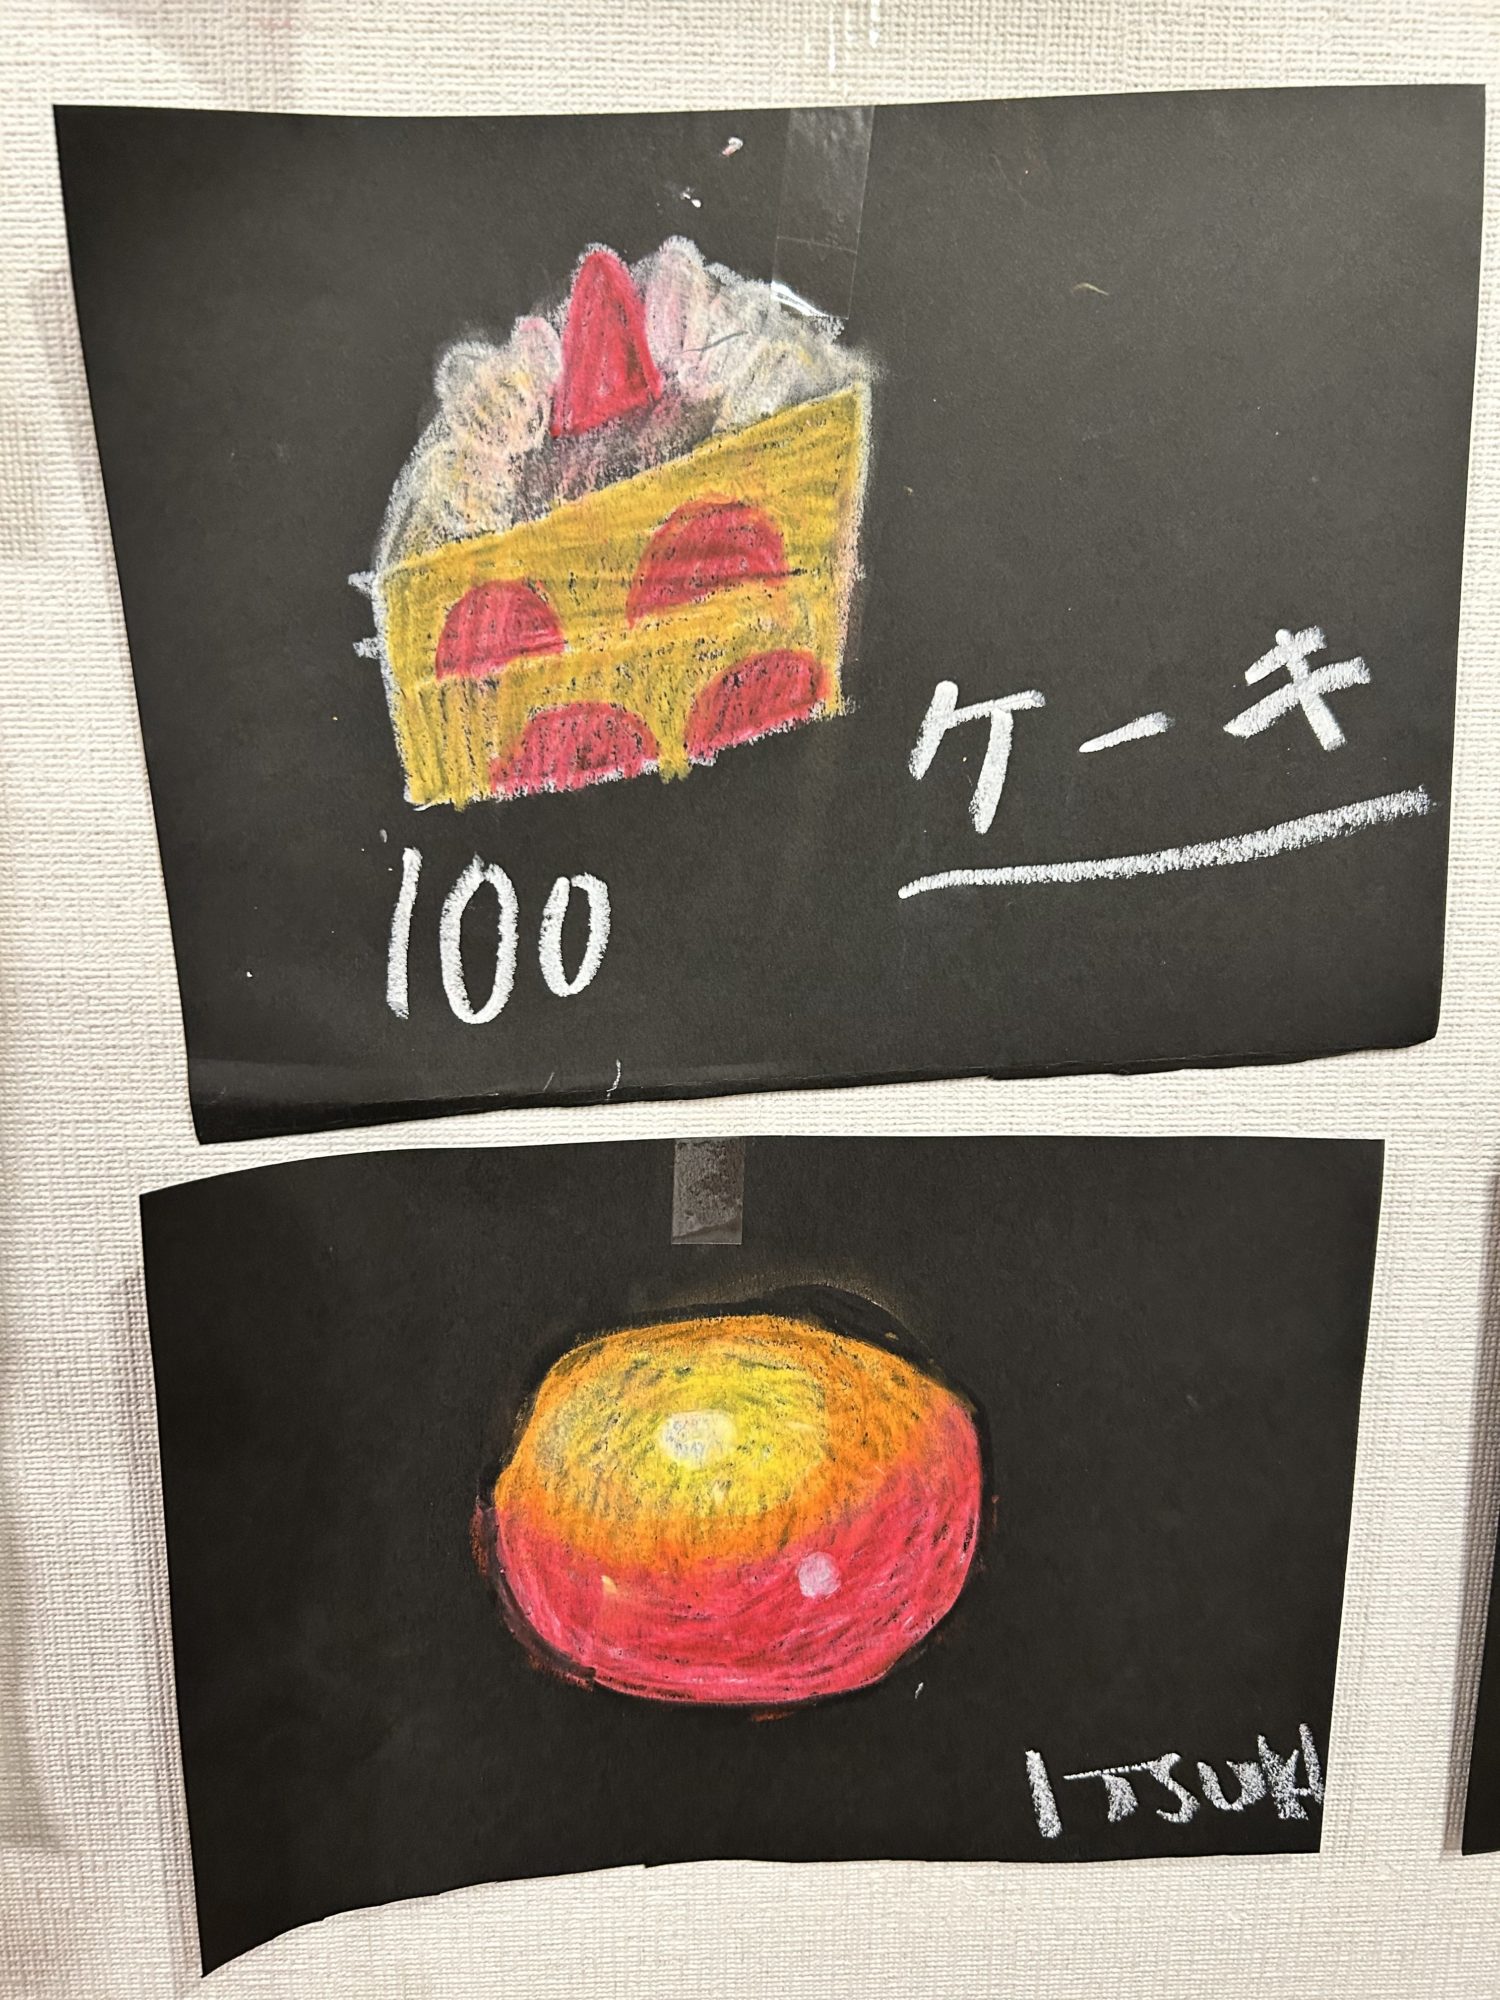 ケーキ
100
ITSUKI